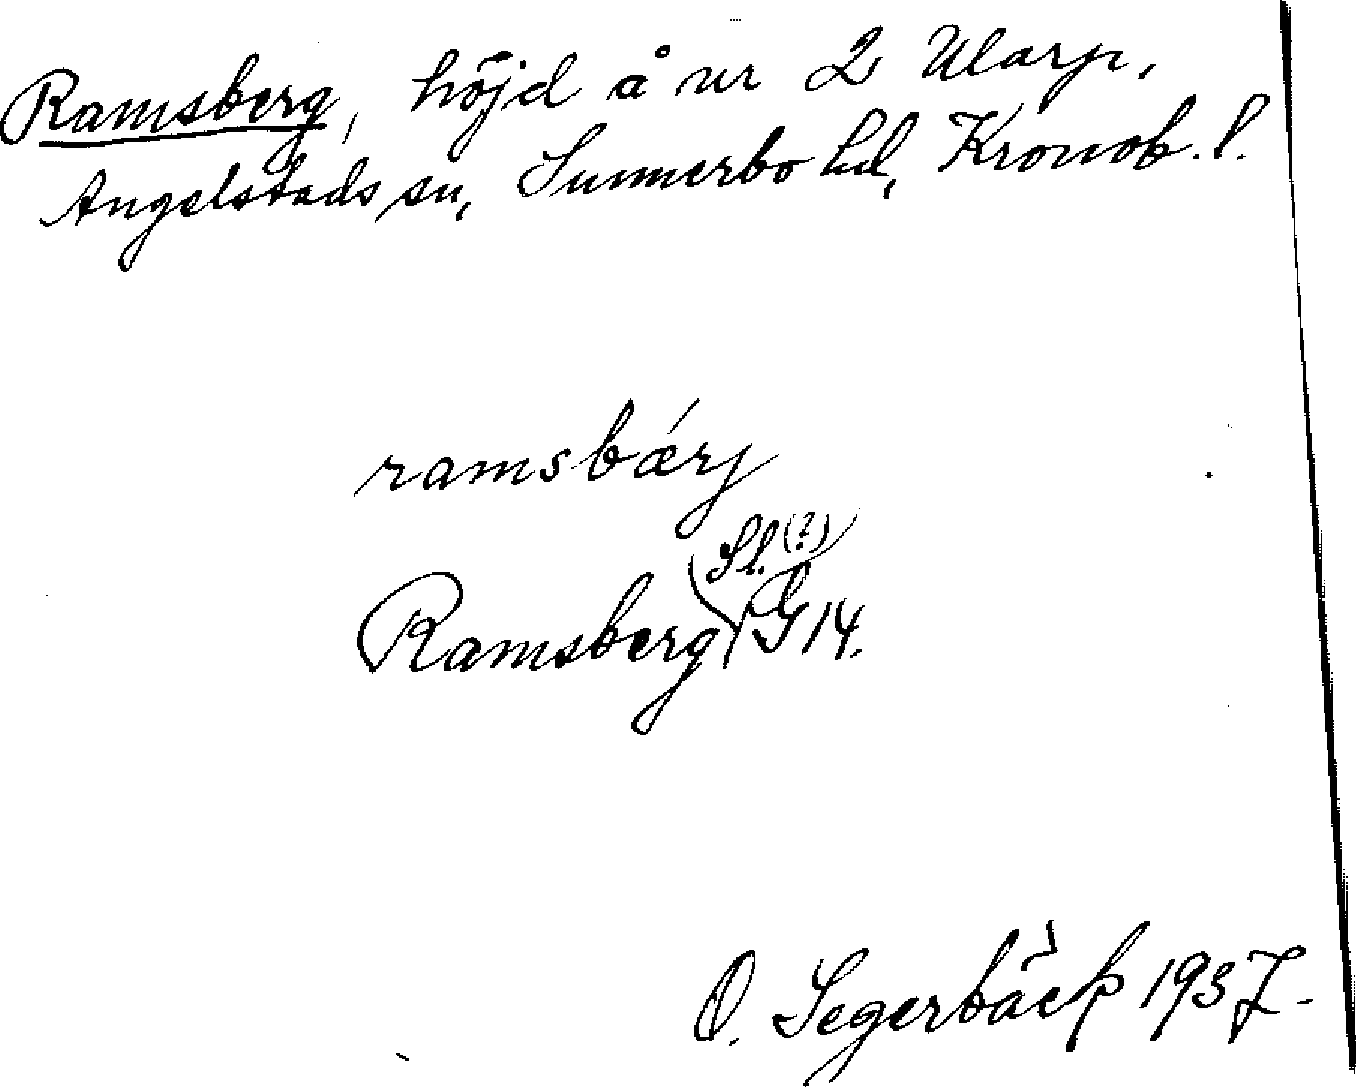 Ramsberg, höjd å nr 2 Ularp,
Angelstads sn, Sunnerbo hd, Kronob. l.
ramsbǽrj
Sl. (?)
Ramsberg G 14.
O. Segerbäck 1937.